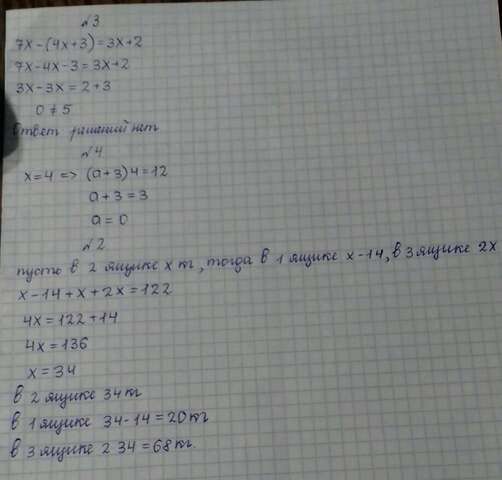 №3
7x-(4x+3)=3x+2
7x-4x-3=3x+2
3x-3x=2+3
0≠5
Ответ решений нет
№4
x=4 => (a+3)4=12
a+3=3
a=0
№2
пусть в 2 ящике x кг, тогда в 1 ящике x-14, в 3 ящике 2x
x-14+x+2x=122
4x=122+14
4x=136
x=34
в 2 ящике 34 кг
в 1 ящике 34-14=20 кг
в 3 ящике 2 34=68 кг.